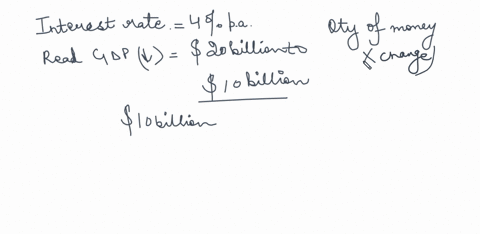 Interest rate = 4% p.a.
Read GDP (↓) = $20 billion to
$10 billion
$10 billion
Qty of money
(X change)